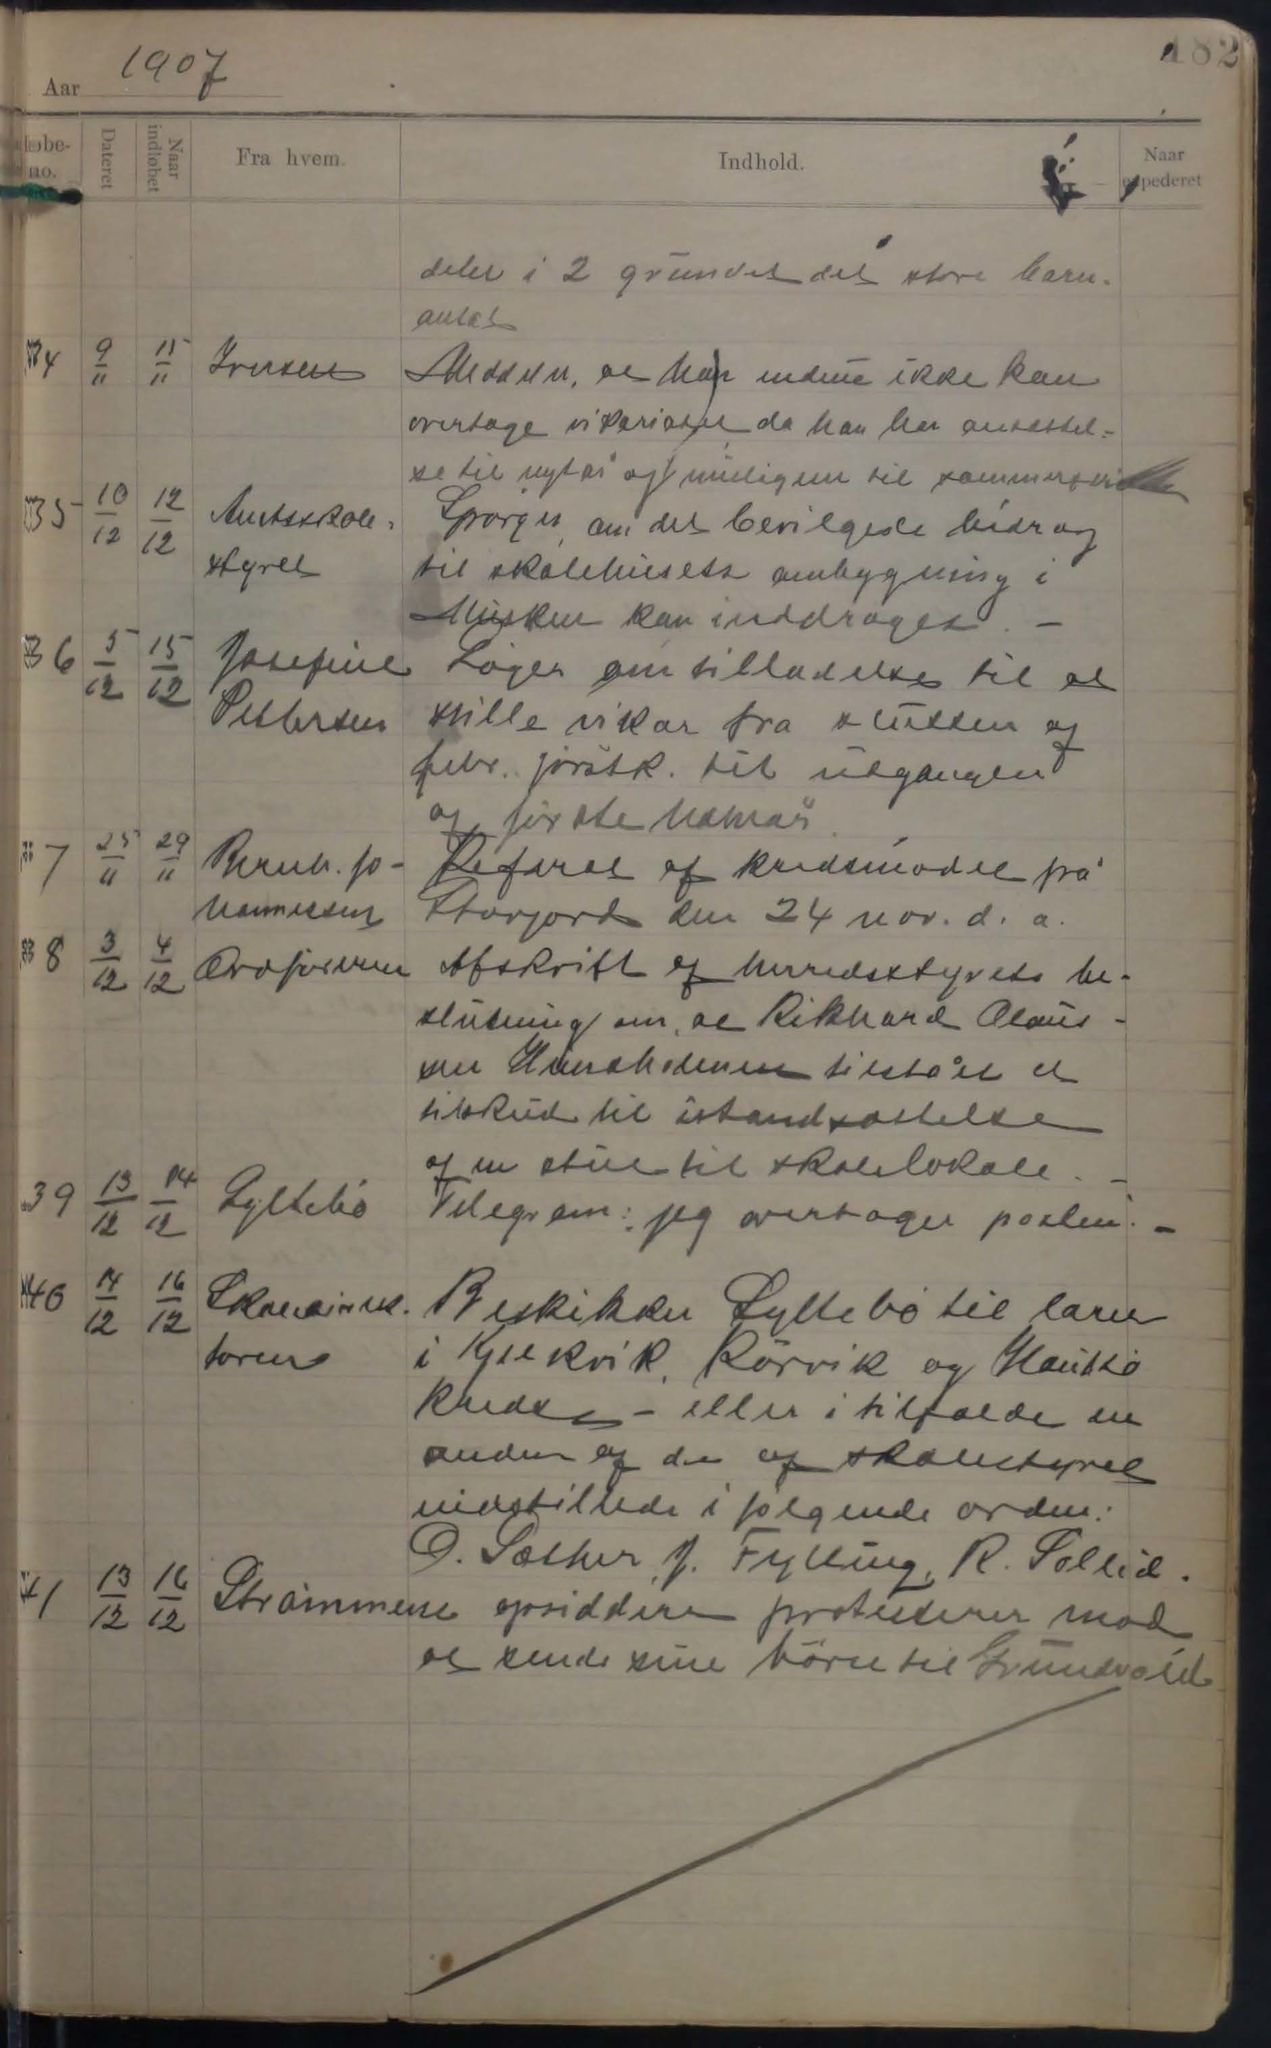 182
Aar 1907
løbe-no. Dateret Naar indløbet Fra hvem. Indhold. Naar expederet
deles i 2 grundet det store barn-
antal
34 9/11 11/11 Iversen Meddeler, at han endnu ikke kan
overtage vikariatet da han har ansættel-
se til nytår og muligens til sommerferien
35 10/12 12/12 Amtsskole- Spørger, om det bevilgede bidrag
styret til skolehusets ombygning i
Musken kan inddrages. -
36 5/12 15/12 Josefine Søger om tilladelse til at
Pettersen stille vikar fra slutten af
febr. førstk. til udgangen
af første halvår.
37 25/11 29/11 Bernh. Jo- Referat af kredsmødet på
hannessen Storjord den 24 nov. d. a.
38 3/12 4/12 Ordføreren Afskrift af herredsstyrets be-
slutning om, at Rikhard Olaus-
sen tilstått et
tilskud til istandsættelse
af en stue til skolelokale. -
39 13/12 14/12 Syltebø Telegram: jeg overtager posten. -
40 14/12 16/12 Skoledirek- Beskikker Syltebø til lærer
tøren i Kjelkvik, Rørvik og
Kredse - eller i tilfælde en
anden af de af skolestyret
indstillede i følgende orden:
O. Sæther, J. Fylling, R. Sollid.
41 13/12 16/12 Strømmens opsiddere protesterer mod
at sende sine børn til Grundvold